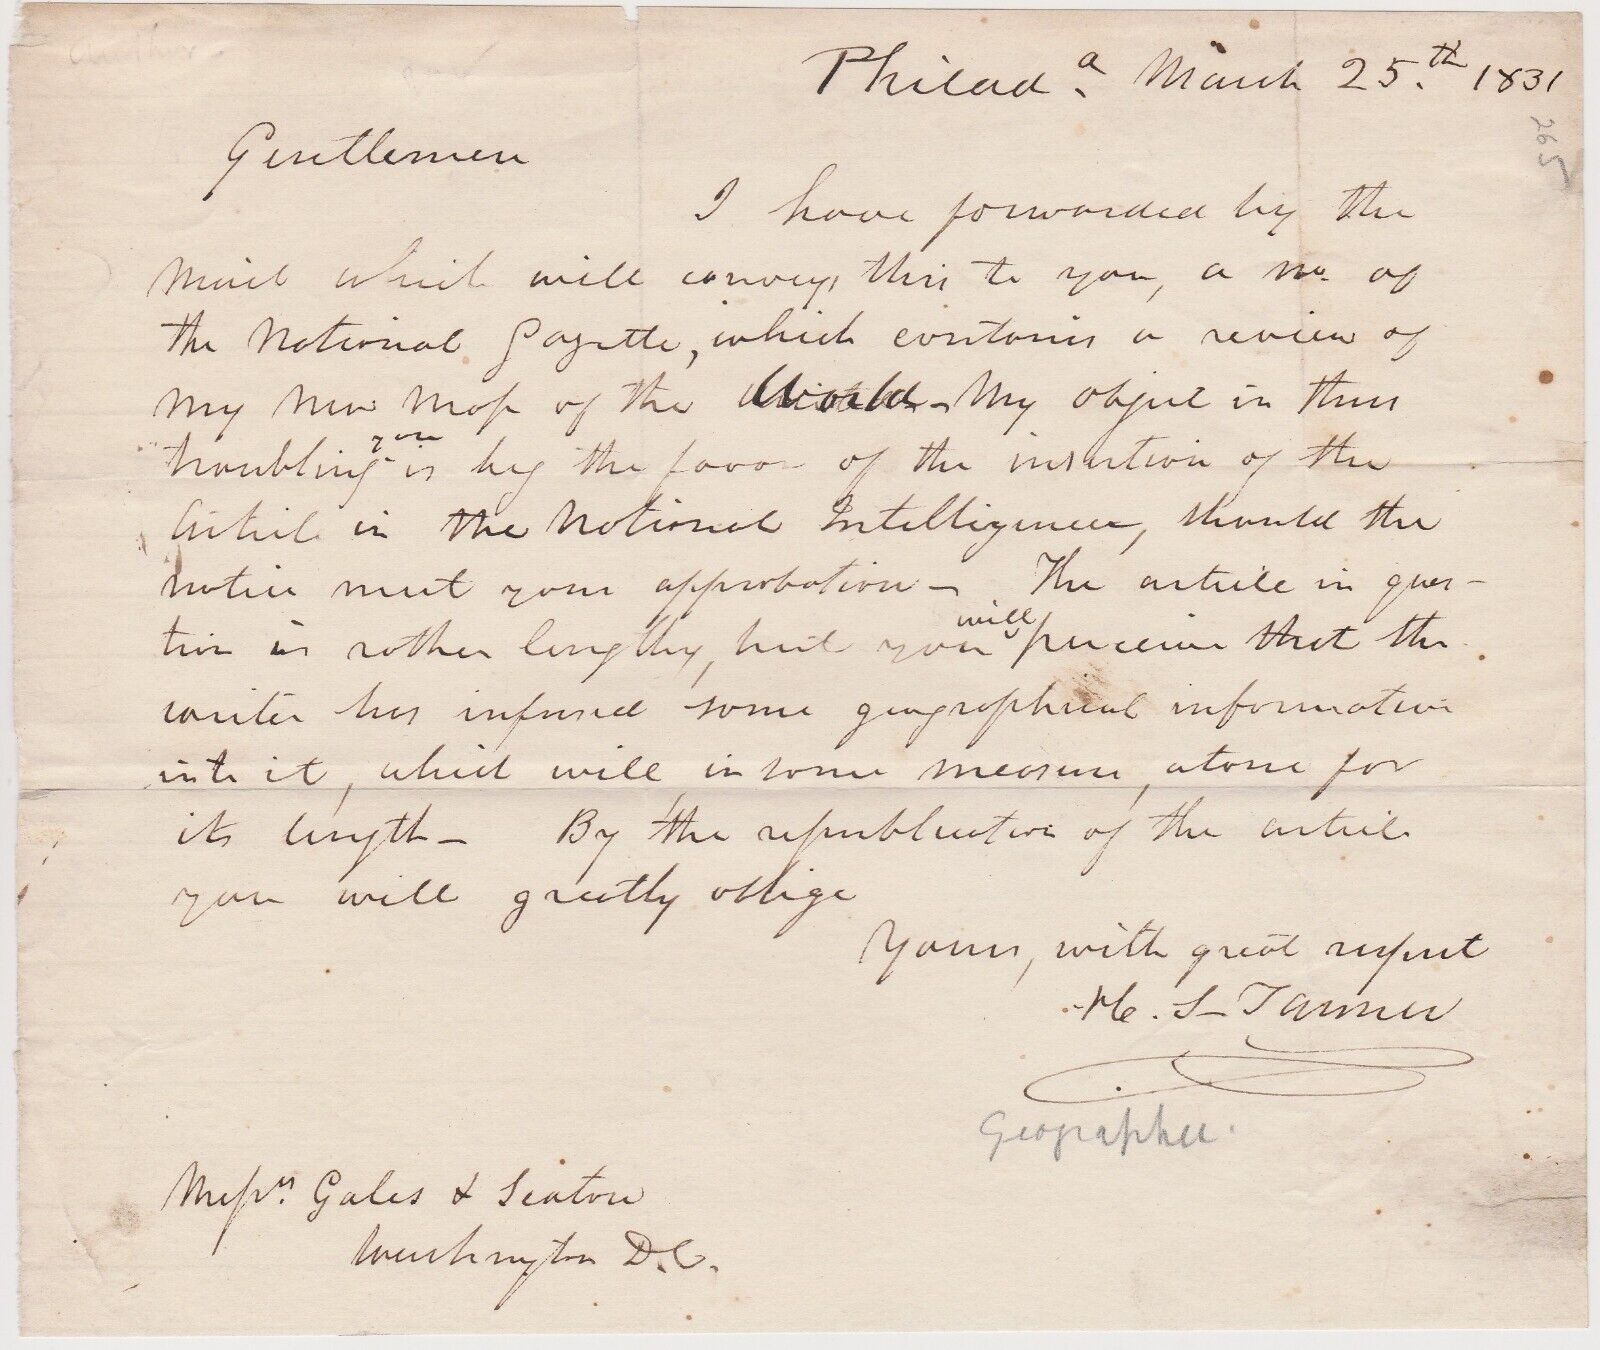 Philad.ª March 25.th 1831
265
Gentlemen
I have forwarded by the
Mail which will convey this to you, a no. of
the National Gazette, which contains a review of
my New Map of the World - My object in thus
troubling you is beg the favor of the insertion of the
Article in the National Intelligencer, should the
notice meet your approbation - The article in ques-
tion is rather lengthy, but you will perceive that the
writer has infused some geographical information
into it, which will, in some measure, atone for
its length - By the republication of the article
you will greatly oblige
Yours, with great respect
H. S. Tanner
Geographer.
Messrs. Gales & Seaton
Washington D.C.